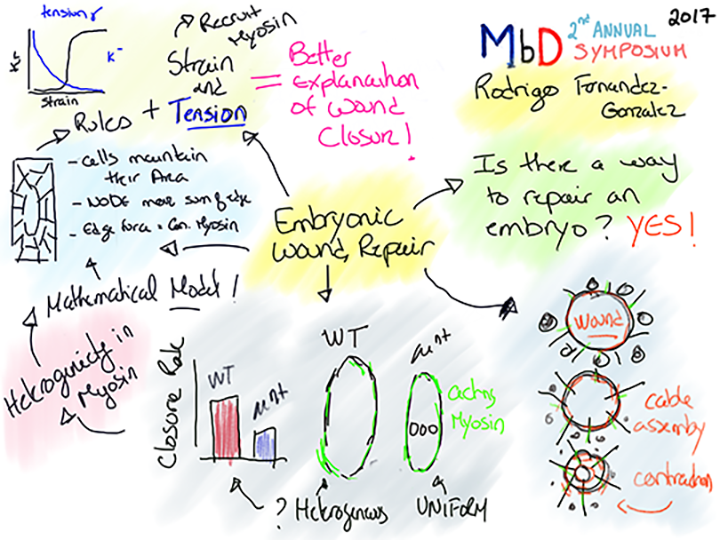 2017
MbD 2nd ANNUAL
SYMPOSIUM
Rodrigo Fernandez-
Gonzalez
tension γ
K-
Strain
Recruit
Myosin
Strain
and
Tension
Rules +
=
Better
explanation
of Wound
Closure!
- Cells maintain
their Area
- NODE move sum of edge
- Edge force = Con. Myosin
Embryonic
Wound Repair
Is there a way
to repair an
embryo? YES!
Mathematical Model!
Heterogeneity in
Myosin
Closure Rate
WT
Mnt
WT
Mnt
Actin,
Myosin
? Heterogenous
UNIFORM
Wound
cable
assembly
contraction